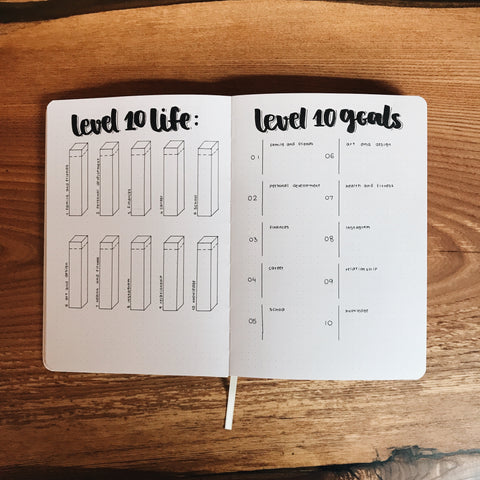 level 10 life:
1. family and friends
2. personal development
3. finances
4. career
5. school
6. art and design
7. health and fitness
8. instagram
9. relationship
level 10 goals
01 family and friends
02 personal development
03 finances
04 career
05 school
06 art and design
07 health and fitness
08 instagram
09 relationship
10